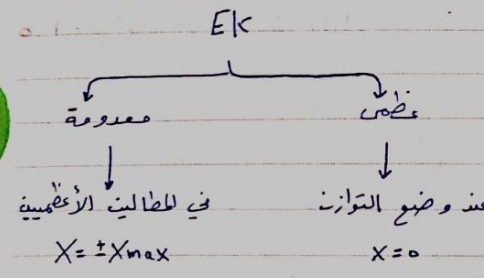 EK
عظمى
معدومة
عند وضع التوازن
في المطالين الأعظميين
X=0
X=±Xmax